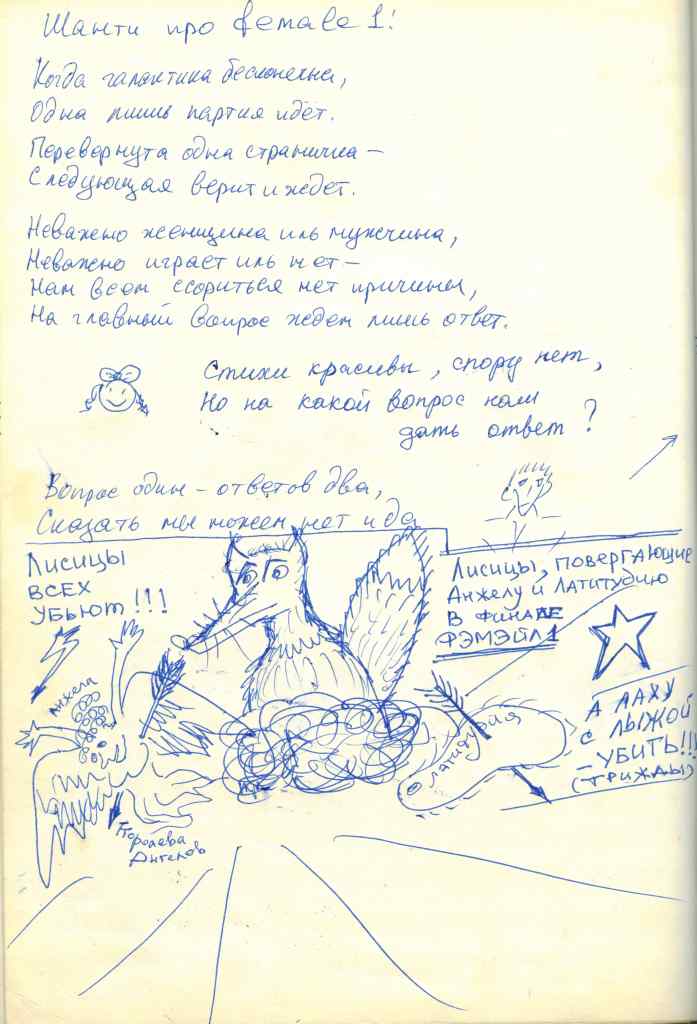 Шанти про female 1!
Когда галактика бесконечна,
Одна лишь партия идёт.
Перевернута одна страничка —
Следующая верит и ждет.
Неважно женщина иль мужчина,
Неважно играет иль нет —
Нам всем ссориться нет причины,
На главный вопрос ждем лишь ответ.
Стихи красивы, спору нет,
Но на какой вопрос нам
дать ответ?
Вопрос один – ответов два,
Сказать мы можем нет и да
Лисицы
ВСЕХ
УБЬЮТ!!!
Лисицы, повергающие
Анжелу и Латитудию
В ФИНАЛЕ
ФЭМЭЙЛ 1
Анжела
Латитудия
А ЛАХУ
С ЛЫЖОЙ
– УБИТЬ!!!
(ТРИЖДЫ)
Королева
Ангелов